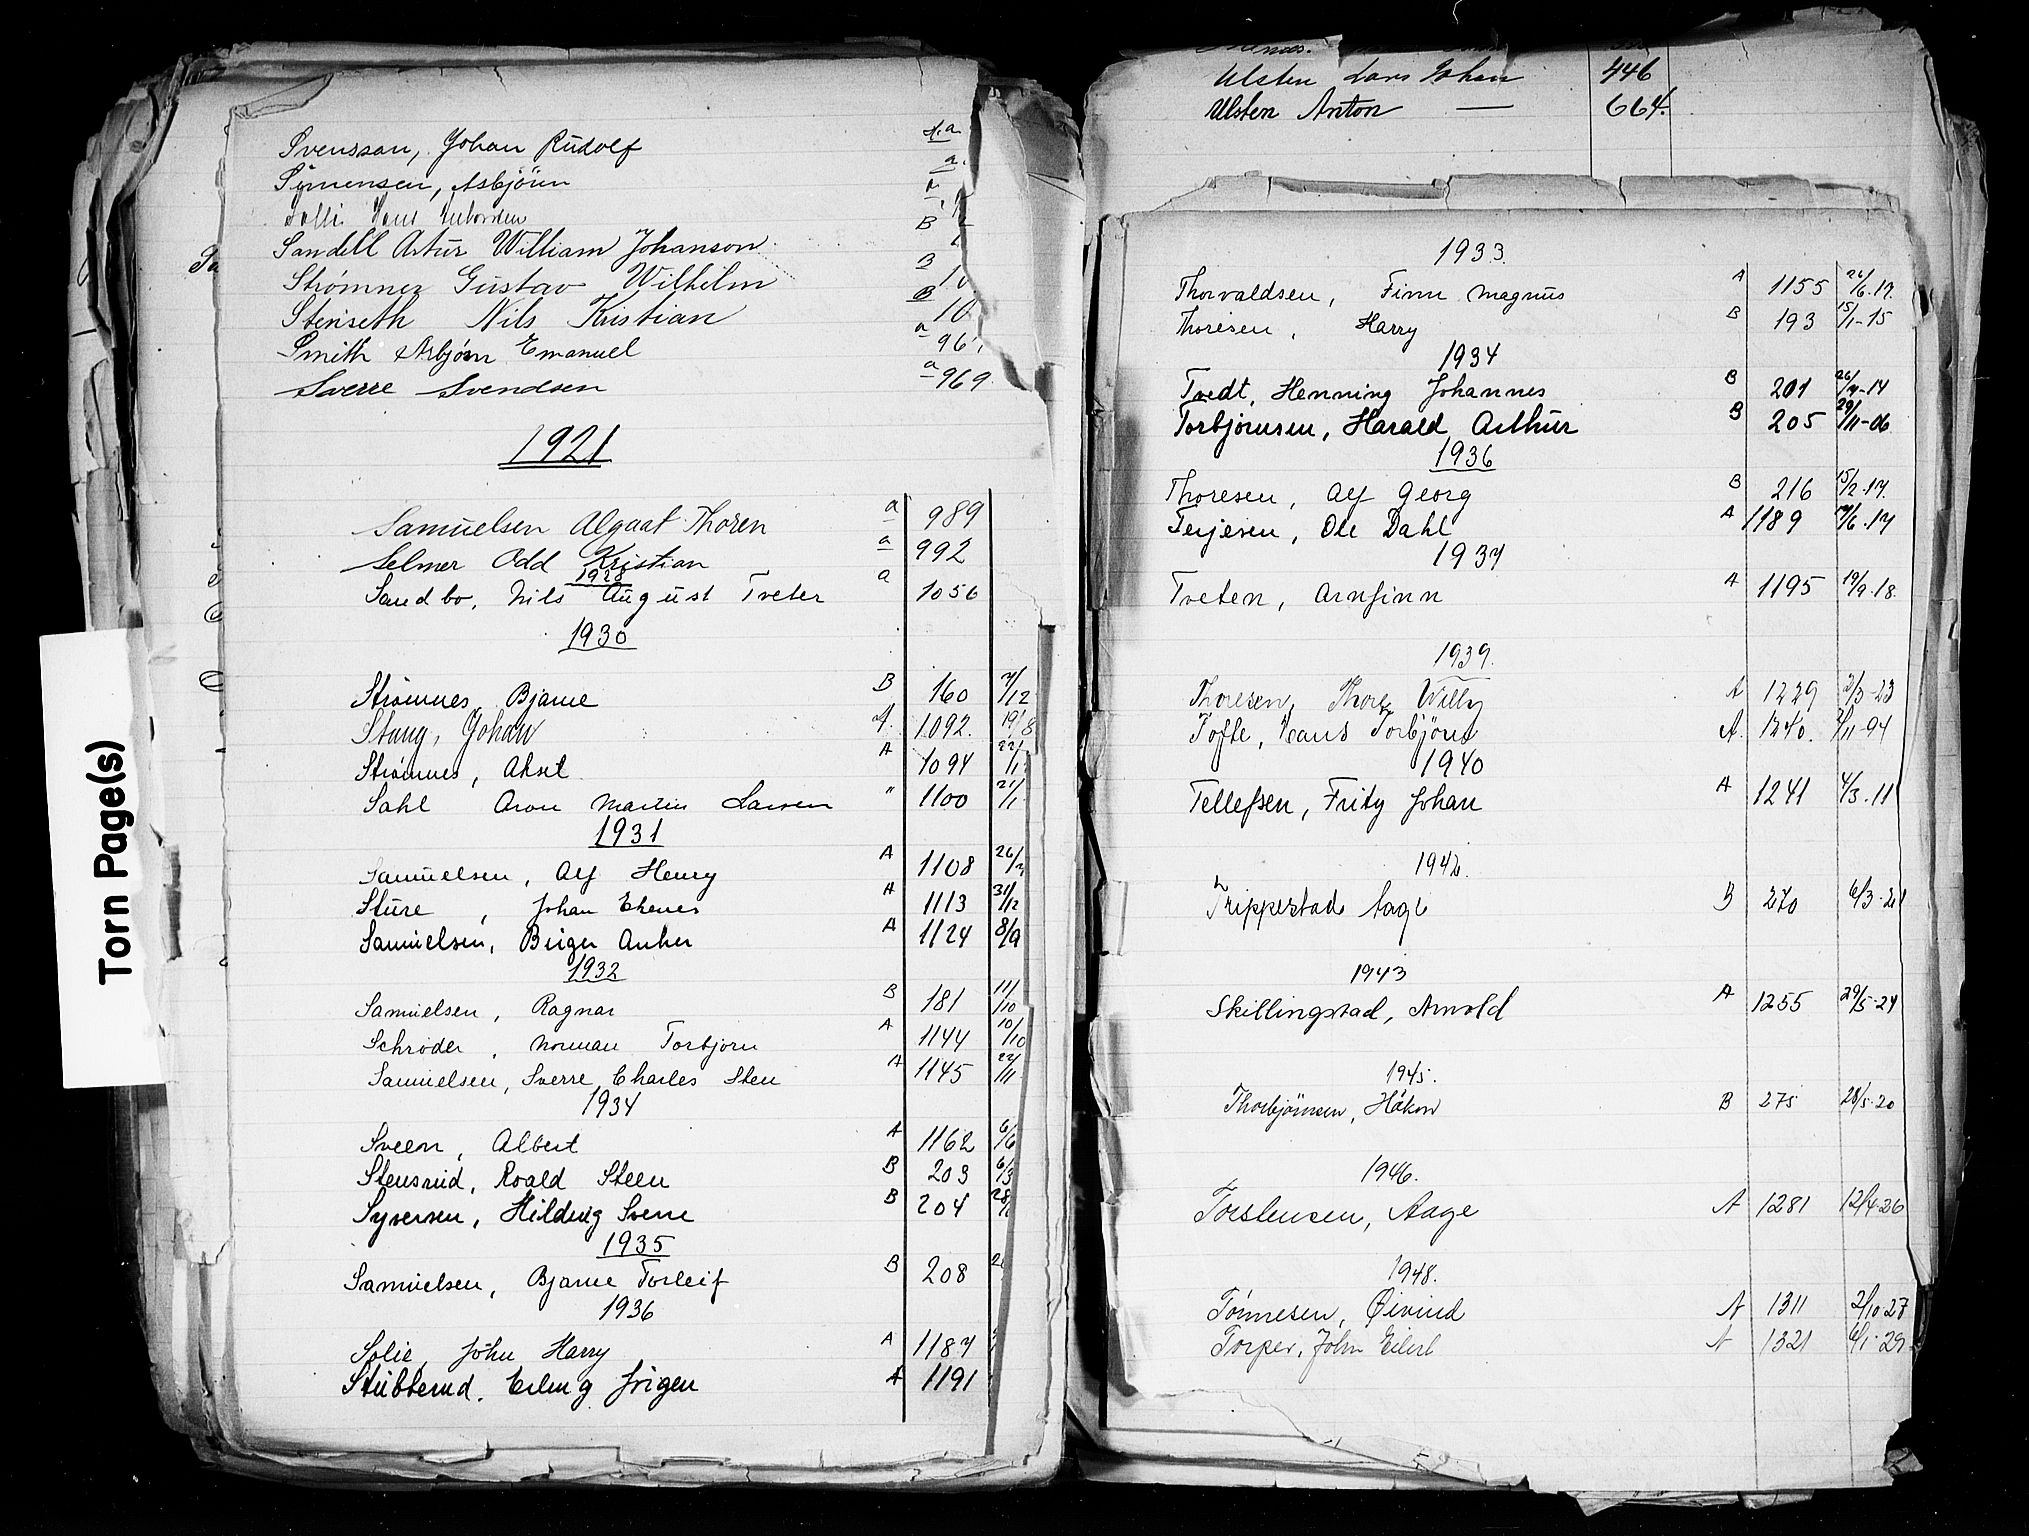 Torn Page(s)
Svensson, Johan Rudolf
Simensen, Asbjörn a.
Sandell Artur William Johanson B
Strömner Gustav Wilhelm B 10
Stenseth Nils Kristian B 10
Smith Asbjørn Emanuel a 96
Sverre Svendsen a 969
1921
Samuelsen Algaat Thoren a 989
Selmer Odd Kristian a 992
1928
Sandbo, Nils August Tveter a 1056
1930
Strømnes, Bjarne B 160 7/12
Stang, Johan A. 1092. 19/8
Strømnes, Aksel A 1094 22/1
Sahl Aron Martin Larsen " 1100 21/1
1931
Samuelsen, Alf Henry A 1108 26/7
Sture, Johan A 1113 31/12
Samuelsen, Birger Anker A 1124 8/9
1932
Samuelsen, Ragnar B 181 11/10
Schrøder, Norman Torbjørn A 1144 10/10
Samuelsen, Sverre Charles Sten A 1145 22/11
1934
Sveen, Albert A 1162 6/6
Stensrud, Roald Steen B 203 6/3
Syversen, Hilding Sverre B 204 28/
1935
Samuelsen, Bjarne Torleif B 208 2
1936
Solie, John Harry A 1187
Stubberud, Erling Jörgen A 1191
Ulsten Lars Johan 446
Ulsten Anton — 664.
1933.
Thorvaldsen, Finn Magnus A 1155 26/6.17.
Thoresen, Harry B 193 15/1-15
1934
Tvedt, Henning Johannes B 201 26/7-14
Torbjørnsen, Harald Arthur B 205 29/11-06
1936
Thoresen, Alf Georg B 216 15/2.17.
Terjesen, Ole Dahl A 1189 19/6.17
1937
Tveten, Arnfinn A 1195 19/9.18.
1939.
Thoresen, Thore Willy A 1229 2/3-23
Tofte, Hans Torbjörn A. 1240. 7/11-94
1940
Tellefsen, Fritz Johan A 1241 4/3.11
1942.
Trippestad Aage B 270 6/3.21
1943
Skillingstad, Arnold A 1255 29/5-24
1945.
Thorbjörnsen, Håkon B 275 28/5.20
1946.
Torstensen, Aage A 1281 12/4-26
1948.
Tönnesen, Øivind A 1311 2/10 27
Torper, John Eilert A 1321 6/1-29